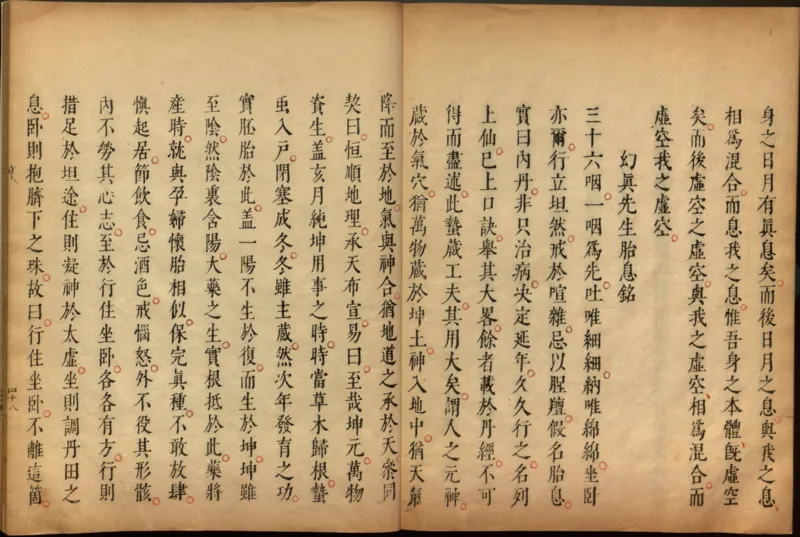 身之日月有眞息矣而後日月之息與我之息
相爲混合而息我之息惟吾身之本體旣虛空
矣而後虛空之虛空與我之虛空相爲混合而
虛空我之虛空
幻眞先生胎息銘
三十六咽一咽爲先吐唯細細納唯綿綿坐卧
亦爾行立坦然戒於喧雜忌以腥羶假名胎息
實曰內丹非只治病决定延年久久行之名列
上仙已上口訣舉其大畧餘者載於丹經不可
得而盡述此蟄藏工夫其用大矣謂人之元神
藏於氣穴猶萬物藏於坤土神入地中猶天氣
降而至於地氣與神合猶地道之承於天叅同
契曰恒順地理承天布宣易曰至哉坤元萬物
資生蓋亥月純坤用事之時時當草木歸根蟄
虫入戶閉塞成冬冬雖主藏然次年發育之功
實胚胎於此蓋一陽不生於復而生於坤坤雖
至陰然陰裏含陽大藥之生實根抵於此藥將
產時就與孕婦懷胎相似保完眞種不敢放肆
愼起居節飲食忌酒色戒惱怒外不役其形骸
內不勞其心志至於行住坐卧各各有方行則
措足於坦途住則凝神於太虛坐則調丹田之
息卧則抱臍下之珠故曰行住坐卧不離這箇
四十八